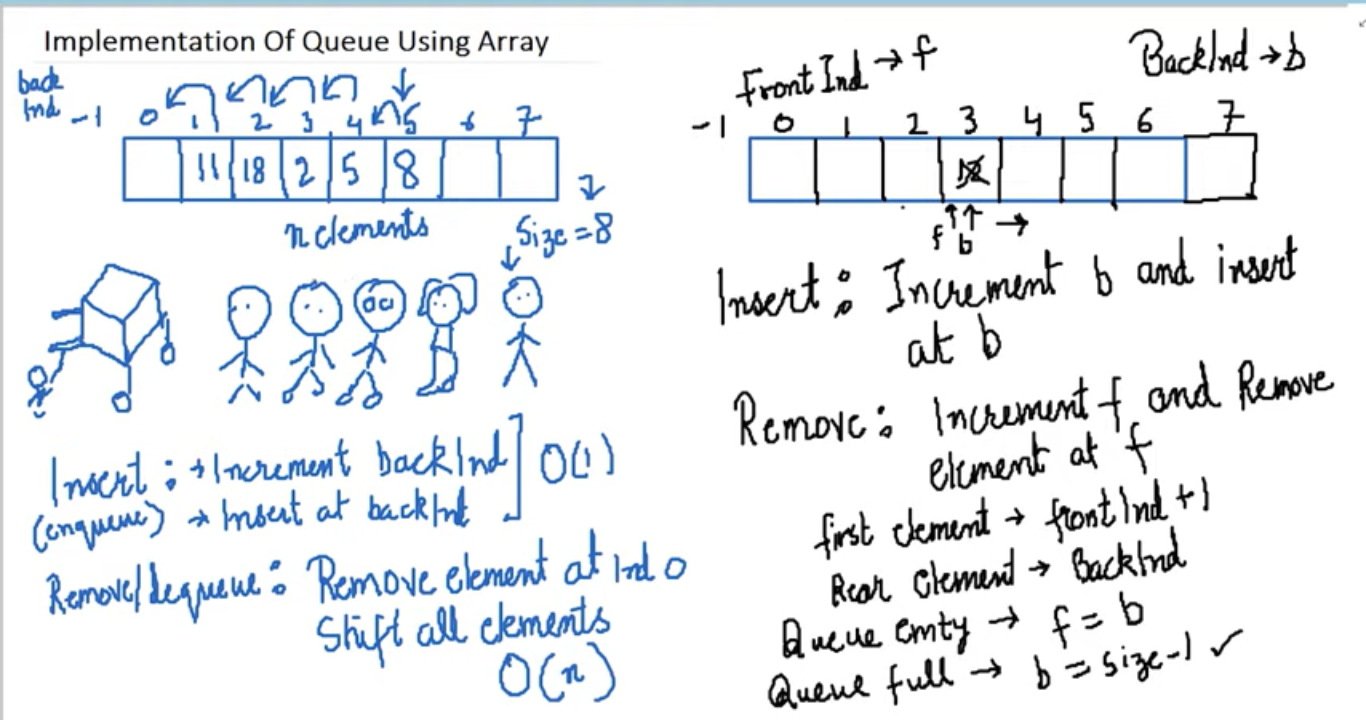 Implementation Of Queue Using Array
back
Ind -1 0 1 2 3 4 5 6 7
11 18 2 5 8
n elements
Size = 8
Insert : → Increment backInd ] O(1)
(enqueue) → Insert at backInd
Remove/dequeue : Remove element at Ind 0
Shift all elements
O(n)
FrontInd → f
BackInd → b
-1 0 1 2 3 4 5 6 7
f b →
Insert : Increment b and insert
at b
Remove : Increment f and Remove
element at f
first element → frontInd + 1
Rear element → BackInd
Queue emty → f = b
Queue full → b = size-1 ✓